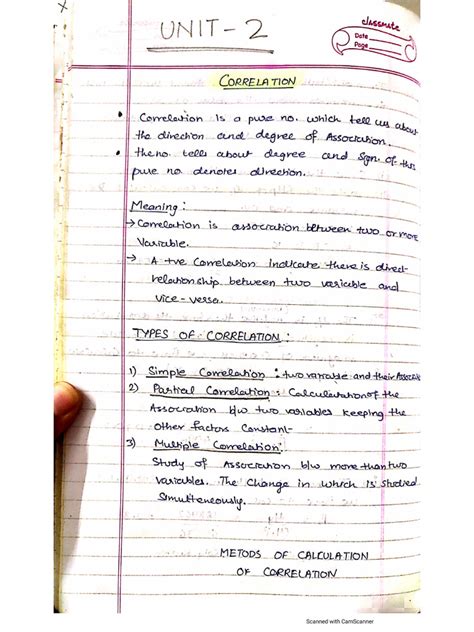 X
UNIT - 2
classmate
Date
Page
CORRELATION
• Correlation is a pure no. which tell us about
the direction and degree of Association.
• the no. tells about degree and sign of this
pure no denotes direction.
Meaning :
→ Correlation is association between two or more
Variable.
→ A +ve Correlation indicate there is direct-
relationship between two variable and
vice-versa.
TYPES OF CORRELATION :
1) Simple Correlation : two variable and their Associa
2) Partial Correlation : Calculation of the
Association b/w two variables keeping the
other factors constant-
3) Multiple Correlation :
Study of Association b/w more than two
variables. The change in which is studied
Simultaneously.
METODS OF CALCULATION
OF CORRELATION
Scanned with CamScanner